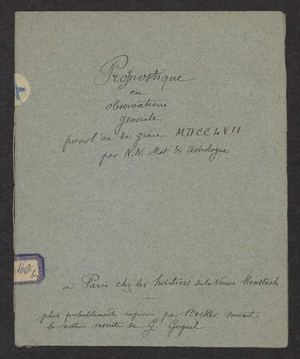 Prognostique
ou
observations
generale
pour l'an de grace MDCCLVII
par N.N. Mat. & astrologue
160
a Paris chez les heritiers de la Veuve
plus probablement imprimé par Boecler suivant
la notice de G Goguel